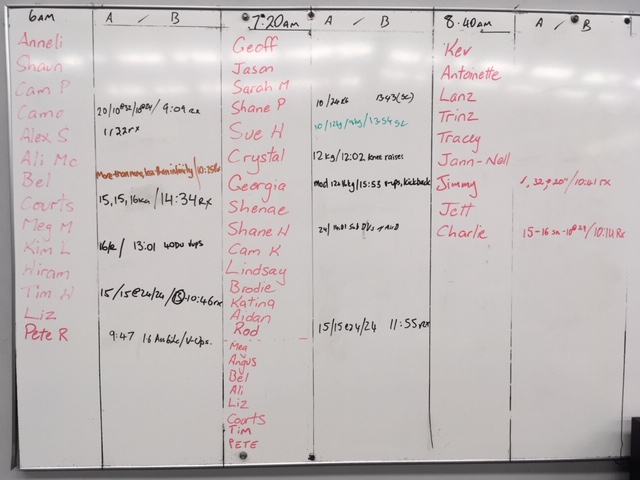 6am A / B
Anneli
Shaun
Cam P
Camo 20/10@32/10@24/ 9:09 rx
Alex S 1122rx
Ali Mc
Bel More than many, less than infinity/10:25
Courts 15, 15, 16kg /14:34 RX
Meg M
Kim L 16/R/ 13:01 40DU Vups
Hiram
Tim H 15/15@24/24/ B 10:46rx
Liz
Pete R 9:47 16 /V-Ups.
7:20am A / B
Geoff
Jason
Sarah M
Shane P 10/24kg 13:43(sc)
Sue H 10/12kg/ /13:54 sc
Crystal 12kg/12:02 knee raises
Georgia Mod 12kg/15:53 v-ups, kickback
Shenae
Shane H 24/
Cam K
Lindsay
Brodie
Katina
Aidan
Rod 15/15@24/24 11:55rx
Meg
Angus
Bel
Ali
Liz
Courts
Tim
PETE
8:40am A / B
Kev
Antoinette
Lanz
Trinz
Tracey
Jann-Nell
Jimmy /10:41 rx
Jett
Charlie 15-16 -10@24/10:14 Rx